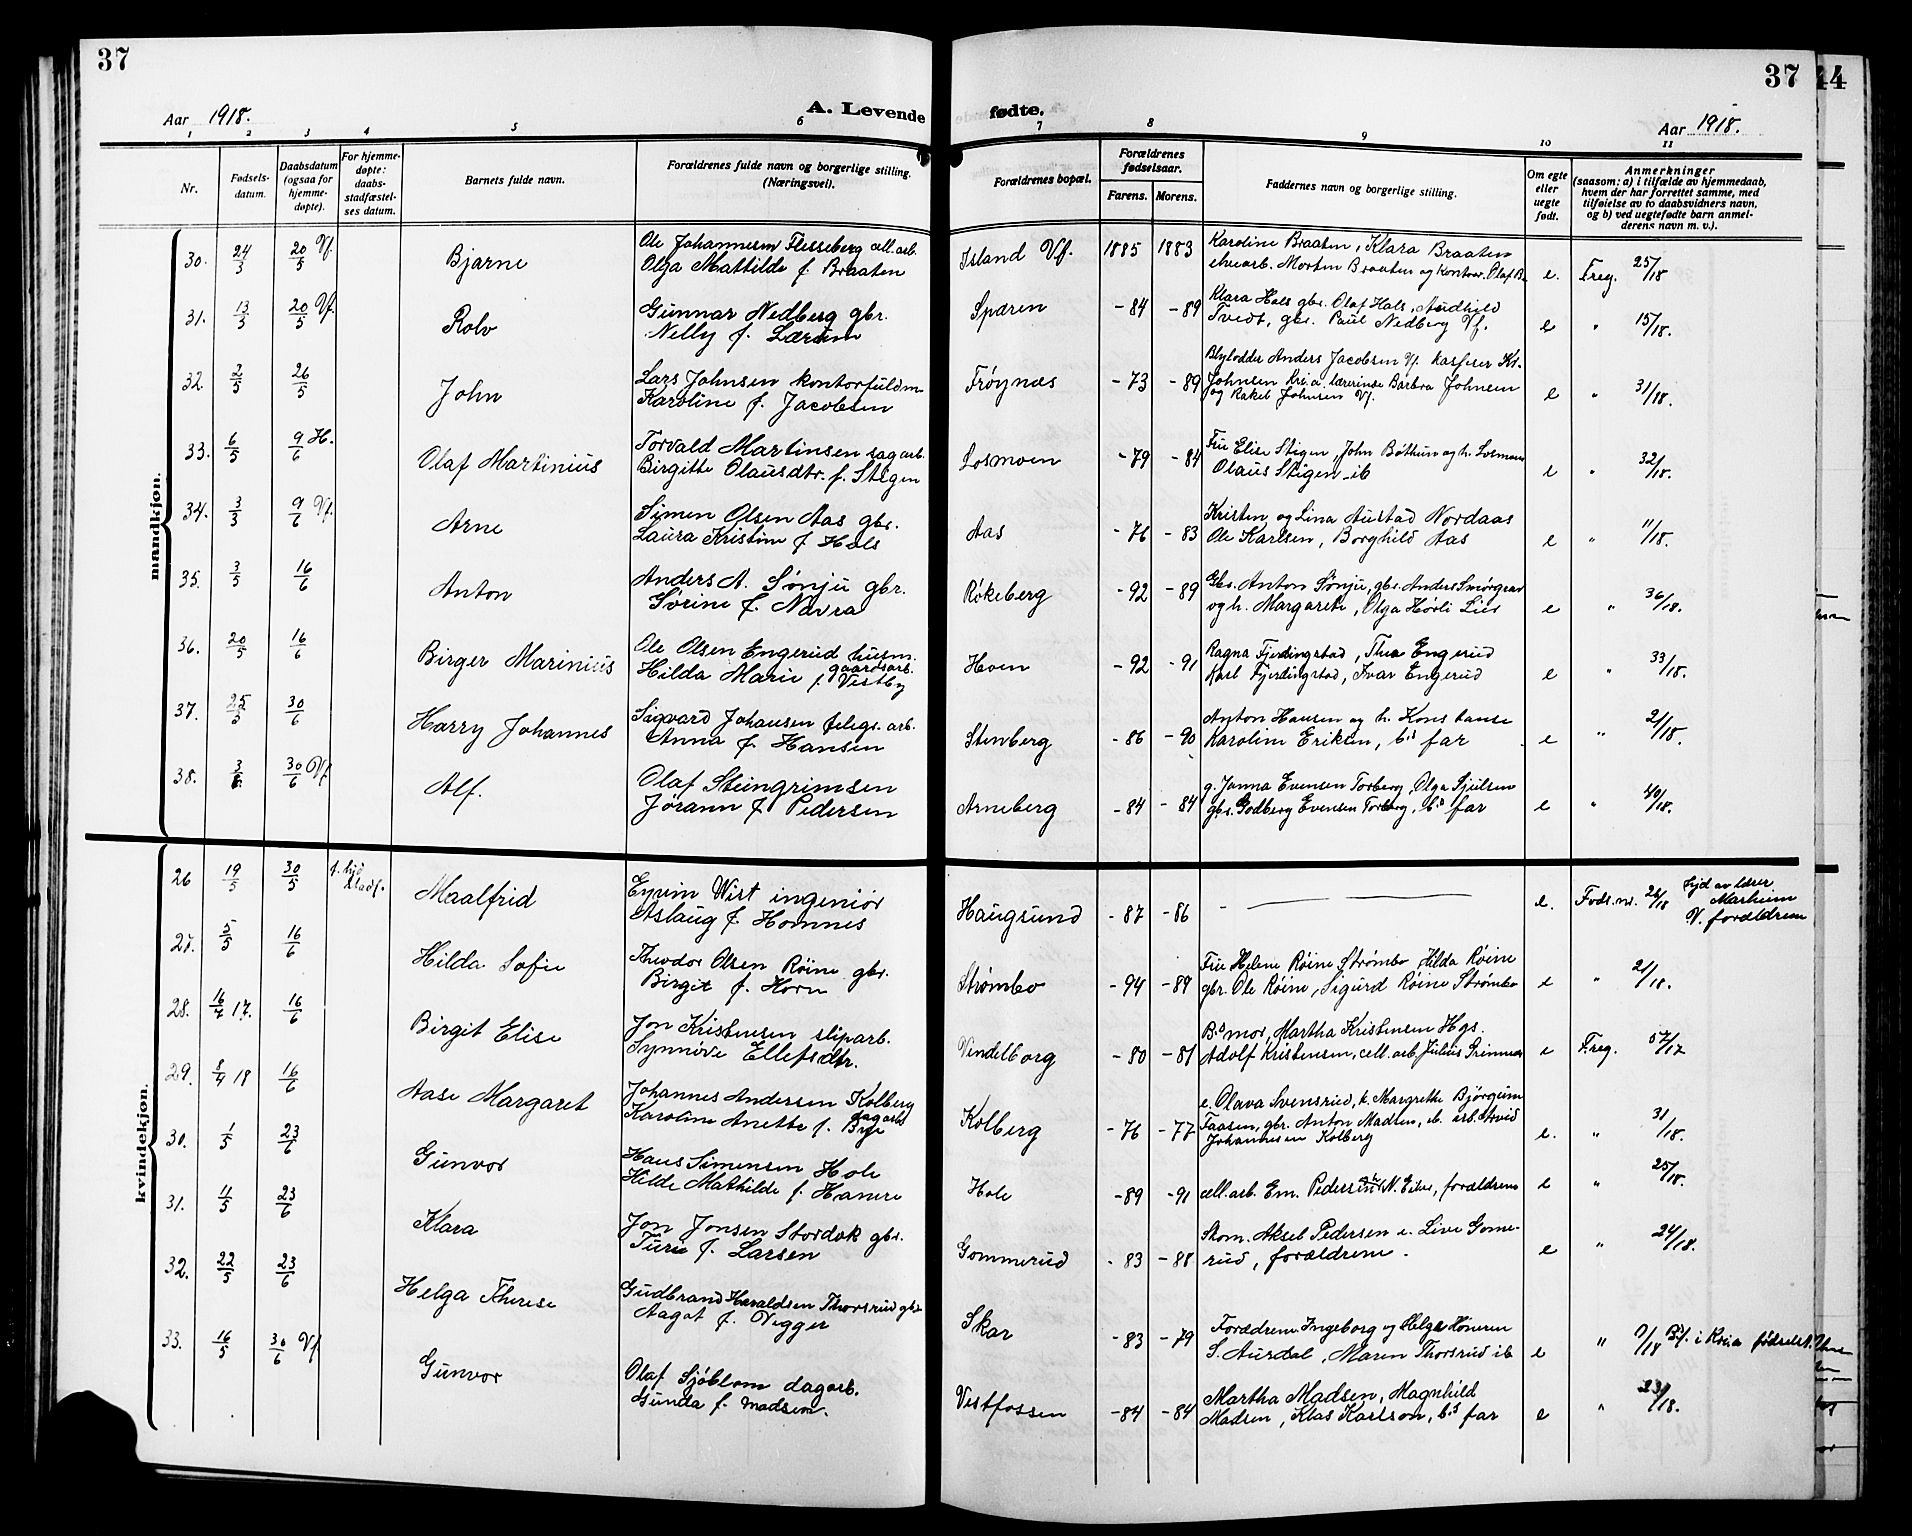 37
37
44
Aar 1918.
A. Levende
fødte.
Aar 1918.
1 2 3 4 5 6 7 8 9 10 11
Nr.
Fødsels-
datum.
Daabsdatum
(ogsaa for
hjemme-
døpte).
For hjemme-
døpte:
daabs-
stadfæstel-
ses datum.
Barnets fulde navn.
Forældrenes fulde navn og borgerlige stilling.
(Næringsvei).
Forældrenes bopæl.
Forældrenes
fødselsaar.
Farens. Morens.
Faddernes navn og borgerlige stilling.
Om egte
eller
uegte
født.
Anmerkninger
(saasom: a) i tilfælde av hjemmedaab,
hvem der har forrettet samme, med
tilføielse av to daabsvidners navn,
og b) ved uegtefødte barn anmel-
derens navn m. v.).
mandkjøn.
30. 24/3 20/5 Vf. Bjarne
Ole Johannesen Flesseberg cell. arb.
Olga Mathilde f. Braaten
Island Vf. 1885 1883
Karoline Braaten, Klara Braaten
elvearb. Morten Braaten og kontor. Olaf B.
e. Freg. 25/18
31. 13/3 20/5 Vf. Rolv
Gunnar Nedberg gbr.
Nelly f. Larsen
Spæren -84 -89
Klara Hals gbr. Olaf Hals, Audhild
Tvedt, gbr. Paul Nedberg Vf.
e " 15/18.
32. 2/5 26/5 John
Lars Johnsen kontorfuldm.
Karoline f. Jacobsen
Frøynæs -73 -89
Blylodder Anders Jacobsen Vf. kasserer Kr.
Johnsen Kr.a. lærerinde Barbra Johnsen
og Rakel Johnsen Vf.
e " 31/18.
33. 6/5 9/6 H. Olaf Martinius
Torvald Martinsen sagarb.
Birgitte Olausdtr. f. Stigen
Losmoen -79 -84
Fru Elise Stigen, John Bøthun og h. Losmoen
Olaus Stigen ib
e " 32/18.
34. 3/3 9/6 Vf. Arne
Simen Olsen Aas gbr.
Laura Kristine f. Hals
Aas -76 -83
Kristen og Lina Austad Nordaas
Ole Karlsen, Borghild Aas
e " 11/18.
35. 3/5 16/6 Anton
Anders A. Sønju gbr.
Sørine f. Navra
Røkeberg -92 -89
Gbr. Anton Sønju, gbr. Anders Smørgrav
og h. Margarete, Olga Hørli Lier
e " 36/18.
36. 20/5 16/6 Birger Marinius
Ole Olsen Engerud husm.
gaardsarb.
Hilda Marie f. Vestby
Hoen -92 -91
Ragna Fjerdingstad, Thea Engerud
Karl Fjerdingstad, Ivar Engerud
e " 33/18.
37. 25/5 30/6 Harry Johannes
Sigvard Johansen telegr. arb.
Anna f. Hansen
Stenberg -86 -90
Anton Hansen og h. Konstanse
Karoline Eriksen, b.s far
e " 21/18.
38. 3/ 30/6 Vf. Alf.
Olaf Steingrimsen
Jørann f. Pedersen
Arneberg -84 -84
g. Janna Evensen Torberg, Olga Sjulsen
gbr. Godberg Evensen Torberg, b.s far
e " 40/18.
kvindekjøn.
26 19/5 30/5 f. hjd stadf. Maalfrid
Eyvin Wist ingeniør
Aslaug f. Homnes
Haugsund -87 -86
e. Føds.nr. 26/18 Hjd av lærer
Marheim
V. forældrene
27. 5/5 16/6 Hilda Sofie
Theodor Olsen Røine gbr.
Birgit f. Horn
Strømbo -94 -89
Fru Helene Røine Strømbo, Hilda Røine
gbr. Ole Røine, Sigurd Røine Strømbo
e " 21/18.
28. 16/4 17. 16/6 Birgit Elise
Jon Kristensen sliparb.
Synnøve Ellefsdtr.
Vindelborg -80 -81
B.s mor, Martha Kristensen Hgs.
Adolf Kristensen, cell. arb. Julius
e Freg. 57/17
29. 8/4 18 16/6 Aase Margaret
Johannes Andersen Kolberg
dagarb.
Karoline Anette f. Bye
Kolberg -76 -77
e. Olava Svensrud, k. Margrethe Bjørgum
Faasen, gbr. Anton Madsen, cb. arb. Arvid
Johannesen Kolberg
e. " 31/18.
30. 1/5 23/6 Gunvor
Hans Simensen Hole
Hilde Mathilde f. Hanere
Hole -89 -91
cell. arb. Em. Pedersen N. Eiker, forældrene
e " 25/18.
31. 11/5 23/6 Klara
Jon Jonsen Stordok gbr.
Turi f. Larsen
Gommerud -83 -88
Skom. Aksel Pedersen e. Live Gome-
rud, forældrene.
e " 24/18.
32. 22/5 23/6 Helga Therese
Gudbrand Haraldsen Thorsrud gbr
Aagot f. Vegger
Skar -83 -79
Forældrene Ingeborg og Helge Høneren
S. Aurdal, Maren Thorsrud ib
e " i Kr.a fødselst.
33. 16/5 30/6 Vf. Gunvor
Olaf Sjøblom dagarb.
Gunda f. Madsen.
Vestfossen -84 -84
Martha Madsen, Magnhild
Madsen, Klas Karlson, b.s far
e " 23/18.